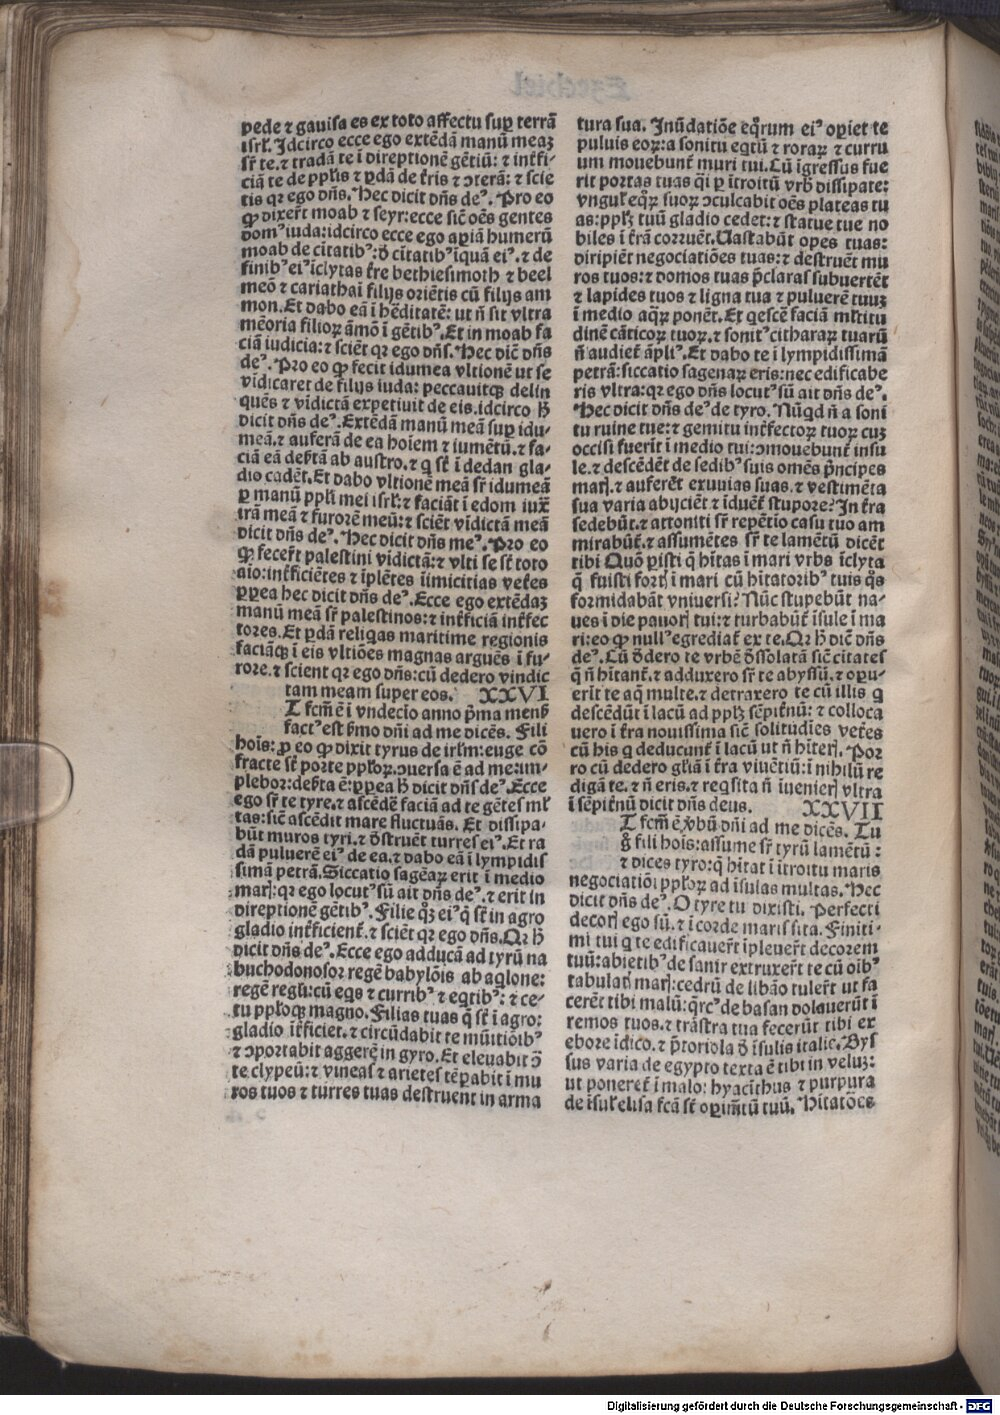 pede ⁊ gauisa es ex toto affectu suꝑ terrā
isrł. Idcirco ecce ego extēdā manū meaꝫ
sr̄ te. ⁊ tradā te ī direptionē gētiū: ⁊ intr̄fi-
ciā te de ppłis ⁊ ꝑdā de tr̄is ⁊ ↄterā: ⁊ scie
tis qꝛ ego dn̄s. Hec dicit dn̄s deꝰ. Pro eo
ꝙ dixer̄t moab ⁊ seyr: ecce sic̄ oēs gentes
domꝰ iuda: idcirco ecce ego aꝑiā humerū
moab de citatibꝰ: d̄ citatibꝰ īquā eiꝰ. ⁊ de
finibꝰ eiꝰ īclytas tr̄e bethiesimoth ⁊ beel
meō ⁊ cariathai filijs oriētis cū filijs am
mon. Et dabo eā ī hēditatē: ut n̄ sit vltra
mēoria filioꝝ āmō ī gētibꝰ. Et in moab fa
ciā iudicia: ⁊ sciēt qꝛ ego dn̄s. Hec dic̄ dn̄s
deꝰ. Pro eo ꝙ fecit idumea vltionē ut se
vīdicaret de filijs iuda: peccauitqꝫ delin
quēs ⁊ vīdictā expetiuit de eis. idcirco h̄
dicit dn̄s deꝰ. Extēdā manū meā suꝑ idu-
meā. ⁊ auferā de ea hoīem ⁊ iumētū. ⁊ fa-
ciā eā deb̄tā ab austro. ⁊ q st̄ ī dedan gla-
dio cadēt. Et dabo vltionē meā sr̄ idumeā
ꝑ manū ppłi mei isrł: ⁊ faciāt ī edom iux̄
irā meā ⁊ furorē meū: ⁊ sciēt vīdictā meā
dicit dn̄s deꝰ. Hec dicit dn̄s meꝰ. Pro eo
ꝙ fecer̄t palestini vidictā: ⁊ vlti se st̄ toto
aīo: intr̄ficiētes ⁊ īplētes īimicitias vetēs
ꝓpea hec dicit dn̄s deꝰ. Ecce ego extēdaꝫ
manū meā sr̄ palestinos: ⁊ intr̄ficiā intr̄fec
tores. Et ꝑdā reliqas maritime regionis
faciāqꝫ ī eis vltiōes magnas arguēs ī fu-
rore. ⁊ scient qꝛ ego dn̄s: cū dedero vindic
tam meam super eos. XXVI
T fcm̄ ē ī vndecīo anno pīma menẜ
factꝰ est ꝟmo dn̄i ad me dicēs. Fili
hoīs: ꝓ eo ꝙ dixit tyrus de irłm: euge cō
fracte st̄ porte ppłoꝝ. ↄuersa ē ad me: im-
plebor: deb̄ta ē: ꝓpea h̄ dicit dn̄s deꝰ. Ecce
ego sr̄ te tyre. ⁊ ascēdē faciā ad te gētes mł
tas: sic̄ ascēdit mare fluctuās. Et dissipa-
būt muros tyri. ⁊ d̄struēt turres eiꝰ. Et ra
dā puluerē eiꝰ de ea. ⁊ dabo eā ī lympidis
simā petrā. Siccatio sagēaꝝ erit ī medio
marꝭ: qꝛ ego locutꝰ sū ait dn̄s deꝰ. ⁊ erit in
direptionē gētibꝰ. Filie qꝫ eiꝰ q̄ st̄ in agro
gladio intr̄ficient̄. ⁊ sciēt qꝛ ego dn̄s. Qꝛ h̄
dicit dn̄s deꝰ. Ecce ego adducā ad tyrū na
buchodonosor regē babylōis ab aqlone:
regē regū: cū eqs ⁊ curribꝰ ⁊ eqtibꝰ: ⁊ ce-
tu ppłoqꝫ magno. Filias tuas q̄ st̄ ī agro:
gladio itr̄ficiet. ⁊ circūdabit te mūitiōibꝰ
⁊ ↄportabit aggerē in gyro. Et eleuabit ↄ̄
te clypeū: ⁊ vineas ⁊ arietes tēꝑabit ī mu
ros tuos ⁊ turres tuas destruent in arma
tura sua. Inūdatiōe eqꝝum eiꝰ oꝑiet te
puluis eoꝝ: a sonitu eqtū ⁊ rotaꝝ ⁊ curru
um mouebunt̄ muri tui. Cū īgressus fue
rit portas tuas q̄i ꝑ ītroitū vrb̄ dissipate:
vngul̄ eqꝝ suoꝝ ↄculcabit oēs plateas tu
as: ppłꝫ tuū gladio cedet: ⁊ statue tue no
biles ī tr̄ā corruēt. Uastabūt opes tuas:
diripiēt negociatiōes tuas: ⁊ destruēt mu
ros tuos: ⁊ domos tuas p̄claras subuertēt
⁊ lapides tuos ⁊ ligna tua ⁊ puluerē tuuꝫ
ī medio aqꝝ ponēt. Et qescē faciā młtitu
dinē cāticoꝝ tuoꝝ. ⁊ sonitꝰ citharaꝝ tuarū
n̄ audiet̄ āpliꝰ. Et dabo te ī lympidissimā
petrā: siccatio sagenaꝝ eris: nec edificabe
ris vltra: qꝛ ego dn̄s locutꝰ sū ait dn̄s deꝰ.
Hec dicit dn̄s deꝰ de tyro. Nūqd n̄ a soni
tu ruine tue: ⁊ gemitu intr̄fectoꝝ tuoꝝ cuꝫ
occisi fuerīt ī medio tui: ↄmouebunt̄ insu
le. ⁊ descēdēt de sedibꝰ suis omēs p̄ncipes
marꝭ. ⁊ auferēt exuuias suas. ⁊ vestimēta
sua varia abijciēt ⁊ īduēt̄ stupore? In tr̄a
sedebūt. ⁊ attoniti sr̄ repētio casu tuo am
mirabūt̄. ⁊ assumētes sr̄ te lamētū dicēt
tibi Quō ꝑisti q̄ h̄itas ī mari vrbs īclyta
q̄ fuisti fortꝭ ī mari cū h̄itatoribꝰ tuis q̄s
formidabāt vniuersi? Nūc stupebūt na-
ues ī die pauorꝭ tui: ⁊ turbabūt̄ īsule ī ma
ri: eo ꝙ nullꝰ egrediat̄ ex te. Qꝛ h̄ dic̄ dn̄s
deꝰ. Cū d̄dero te vrbē d̄ssolatā sic̄ citates
q̄ n̄ h̄itant̄. ⁊ adduxero sr̄ te abyssū. ⁊ oꝑu-
erīt te aq̄ multe. ⁊ detraxero te cū illis q
descēdūt ī lacū ad ppłꝫ sēpit̄nū: ⁊ colloca
uero ī tr̄a nouissima sic̄ solitudīes vetēs
cū his q deducunt̄ ī lacū ut n̄ h̄iterꝭ. Por
ro cū dedero gl̄iā ī tr̄a viuētiū: ī nihilū re
digā te. ⁊ n̄ eris. ⁊ reqsita n̄ īuenierꝭ vltra
ī sēpit̄nū dicit dn̄s deus. XXVII
T fcm̄ ē ꝟbū dn̄i ad me dicēs. Tu
g̊ fili hoīs: assume sr̄ tyrū lamētū:
⁊ dices tyro: q̄ h̄itat ī ītroitu maris
negociatiōi ppłoꝝ ad īsulas multas. Hec
dicit dn̄s deꝰ. O tyre tu dixisti. Perfecti
decorꝭ ego sū. ⁊ ī corde maris sita. Finiti-
mi tui q te edificauer̄t īpleuer̄t decorem
tuū: abietibꝰ de sanir extruxer̄t te cū oībꝰ
tabulatꝭ marꝭ: cedrū de libāo tuler̄t ut fa
cerēt tibi malū: q̄rcꝰ de basan dolauerūt ī
remos tuos. ⁊ trāstra tua fecerūt tibi ex
ebore īdico. ⁊ p̄toriola d̄ īsulis italie. Bys
sus varia de egypto texta ē tibi in veluꝫ:
ut poneret̄ ī malo: hyacīthus ⁊ purpura
de īsul̄ elisa fcā st̄ oꝑimt̄ū tuū. Hitatōes
Digitalisierung gefördert durch die Deutsche Forschungsgemeinschaft - DFG